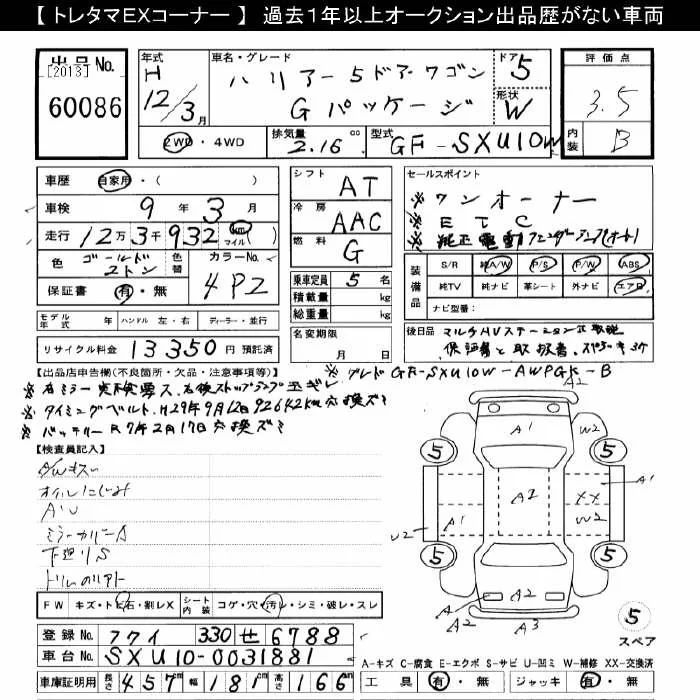 【 トレタマEXコーナー 】 過去１年以上オークション出品歴がない車両
出品No.
[2013]
60086
年式
H
12/3月
車名・グレード
ハリアー5ドアワゴン
Gパッケージ
ドア
5
形状
W
評価点
3.5
内装
B
2WD・4WD
排気量
2.16 cc
型式
GF-SXU10W
車歴 自家用・( )
車検 9年3月
走行 12万3千932 km マイル
色 ゴールド2トン
色替
カラーNo.
4P2
保証書 有・無
シフト
AT
冷房
AAC
燃料
G
乗車定員 5名
積載量 kg
総重量 kg
名変期限
月 日
セールスポイント
※ワンオーナー
※ETC
装備品
S/R 純A/W P/S P/W ABS
純TV 純ナビ 革シート 外ナビ エアB
ナビ型番:
モデル年式 年 ハンドル 左・右 ディーラー・並行
リサイクル料金 13350円 預託済
後日品
【出品店申告欄(不良箇所・欠品・注意事項等)】
※グレードGF-SXU10W-AWPGK-B
※タイミングベルト、H29年9月12日92642km交換ズミ
※バッテリーR7年2月17日交換ズミ
【検査員記入】
オイルにじみ
ミラーカバーA
下廻りS
FW キズ・ト石・割レX
シート内装 コゲ・穴・汚レ・シミ・破レ・スレ
登録No. フクイ 330 せ 6788
車台No. SXU10-0031881
車庫証明用 長さ457cm 幅181cm 高さ166cm
A2
A1
W2
5
5
A1
A2
XX
A1
W2
W2
5
5
A2
A2
A2
A3
5
スペア
A-キズ C-腐食 E-エクボ S-サビ U-凹ミ W-補修 XX-交換済
工具 有・無 ジャッキ 有・無